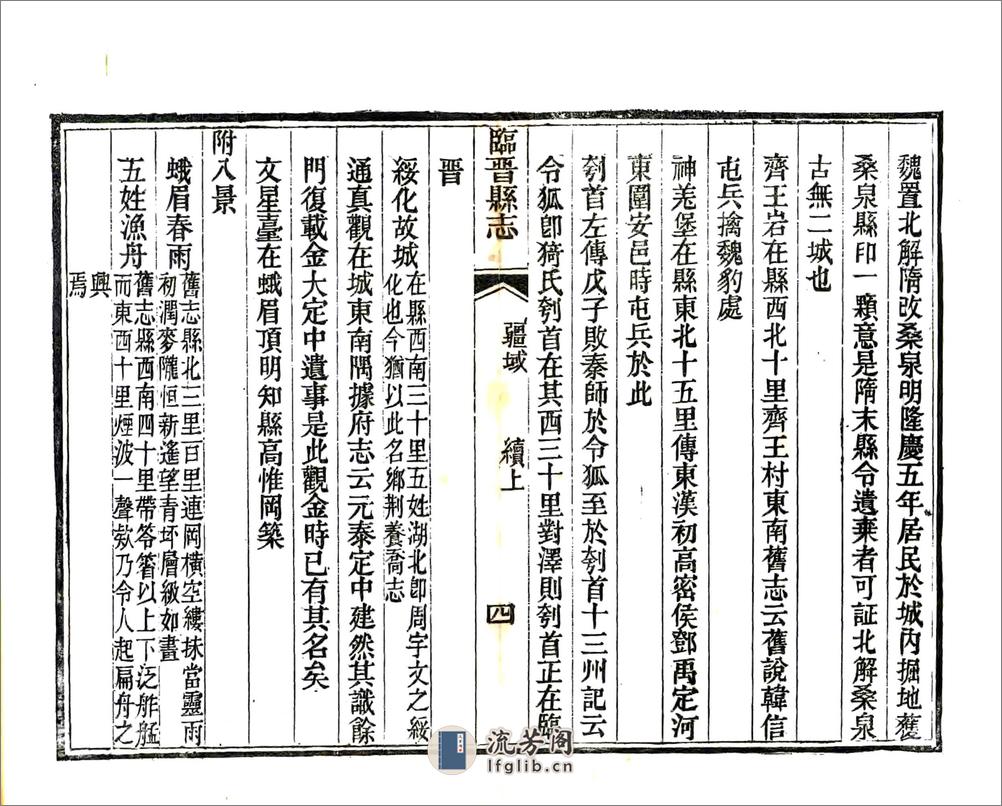 魏置北解隋改桑泉明隆慶五年居民於城內掘地獲
桑泉縣印一顆意是隋末縣令遺棄者可証北解桑泉
古無二城也
齊王岩在縣西北十里齊王村東南舊志云舊說韓信
屯兵擒魏豹處
神羗堡在縣東北十五里傳東漢初高密侯鄧禹定河
東圍安邑時屯兵於此
刳首左傳戊子敗秦師於令狐至於刳首十三州記云
令狐卽猗氏刳首在其西三十里對澤則刳首正在臨
臨晋縣志
疆域
續上
四
晋
綏化故城
在縣西南三十里五姓湖北卽周宇文之綏
化也今猶以此名鄉荆養喬志
通真觀在城東南隅據府志云元泰定中建然其識餘
門復載金大定中遺事是此觀金時已有其名矣
文星臺在蛾眉頂明知縣高惟岡築
附八景
蛾眉春雨
舊志縣北三里百里連岡橫空縷抹當靈雨
初潤麥隴恒新遙望青坯層級如畫
五姓漁舟
舊志縣西南四十里帶笭箵以上下泛舴艋
而東西十里煙波一聲欸乃令人起扁舟之
興
焉
流芳阁
lfglib.cn